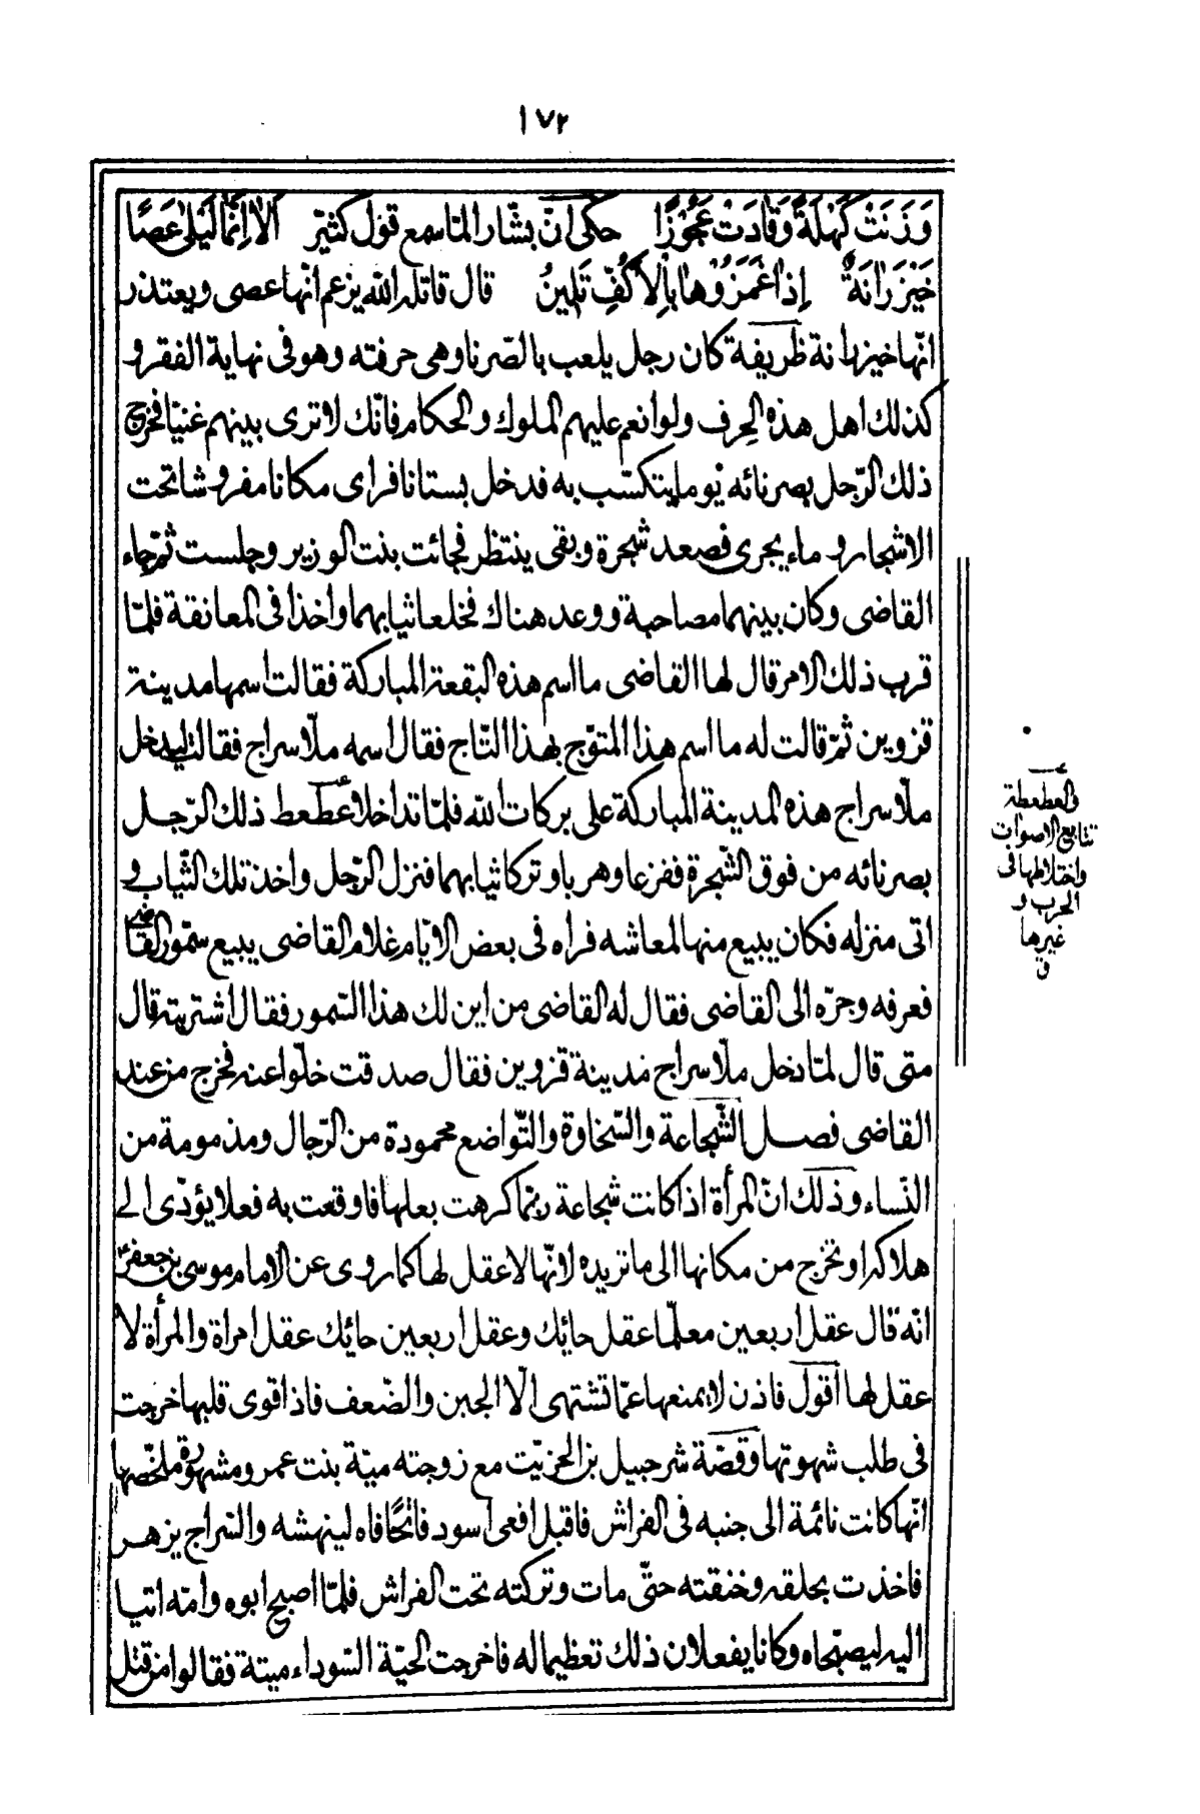 ١٧٢
وَزَنَتْ كَهْلَةً وَقَادَتْ عَجُوْزًا حكى انّ بشّار المّا سمع قول كثيّر اَلاٰ اِنَّمٰا لَيْلىٰ عَصًا
خَيْزَرٰانَةٌ اِذٰا غَمَزُوْهٰا بِالْاَكُفِّ تَلِينُ قال قاتله الله يزعم انّها عصى ويعتذر
انّها خيزرانة ظريفة كان رجل يلعب بالصّرنا وهى حرفته وهو فى نهاية الفقر و
كذلك اهل هذه الحِرف ولو انعم عليهم الملوك والحكام فانّك لا ترى بينهم غنيّا فخرج
ذلك الرّجل بصرنائه يوما يتكسّب به فدخل بستانا فراى مكانا مفروشا تحت
الاشجار و ماء يجرى فصعد شجرة وبقى ينتظر فجائت بنت الوزير وجلست ثمّ جاء
القاضى وكان بينهما مصاحبة ووعد هناك فخلعا ثيابهما واخذا فى المعانقة فلمّا
قرب ذلك الامر قال لها القاضى ما اسم هذه البقعة المباركة فقالت اسمها مدينة
قزوين ثمّ قالت له ما اسم هذا المتوّج بهذا التّاج فقال اسمه ملّا سراج فقالت ليدخل
ملّا سراج هذه المدينة المباركة على بركات الله فلمّا تداخلا عطعط ذلك الرّجل
بصرنائه من فوق الشّجرة ففزعا وهربا وتركا ثيابهما فنزل الرّجل واخذ تلك الثّياب و
اتى منزله فكان يبيع منها لمعاشه فراه فى بعض الايّام غلام القاضى يبيع سمّور القاضى
فعرفه وجرّه الى القاضى فقال له القاضى من اين لك هذا السّمور فقال اشتريته قال
متى قال لمّا دخل ملّا سراج مدينة قزوين فقال صدقت خلّوا عنه فخرج من عند
القاضى فصل الشّجاعة والسّخاوة والتّواضع محمودة من الرّجال ومذمومة من
النّساء وذلك انّ المرأة اذا كانت شجاعة ربّما كرهت بعلها فاوقعت به فعلا يؤدّى الى
هلاكه او تخرج من مكانها الى ما تريده لانّها لا عقل لها كما روى عن الامام موسى بن جعفرؑ
انه قال عقل اربعين معلّما عقل حائك وعقل اربعين حائك عقل امراة والمرأة لا
عقل لها اقول فاذن لا يمنعها عمّا تشتهى الّا الجبن والضّعف فاذا قوى قلبها خرجت
فى طلب شهوتها وقصّة شرحبيل بن الحزيّت مع زوجته ميّة بنت عمرو مشهورة ملخّصها
انّها كانت نائمة الى جنبه فى الفراش فاقبل افعى اسود فاتحًا فاه لينهشه والسّراج يزهر
فاخذت بحلقه وخنقته حتّى مات وتركته تحت الفراش فلمّا اصبح ابوه وامّه اتيا
اليه ليصبّحاه وكانا يفعلان ذلك تعظيما له فاخرجت الحيّة السّوداء ميتة فقالوا من قتل
والعطعطة
تتابع الاصوات
واختلاطها فى
الحرب و
غيرها
ق